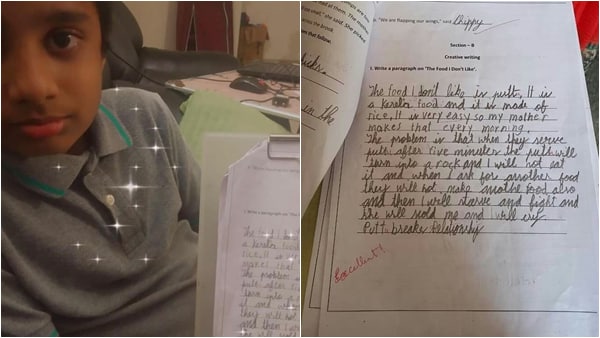 "We are flapping our wings," said Chippy
Section – B
Creative writing
I. Write a paragraph on 'The Food I Don't Like'.
The food I don't like is putt. It is
a kerala food and it is made of
rice. It is very easy so my mother
makes that every morning.
The problem is that when they serve
putt after five minutes the putt will
turn into a rock and I will not eat
it and when I ask for another food
they will not make anothe food also
and then I will starve and fight and
she will scold me and I will cry
Putt breaks relationship
Excellent!
in the
I. Write a paragraph on 'The Food I
The food I don
a kerala foo
rice. It
makes that
The problem
putt after
turn into a
it and whe
they will not
and then I w